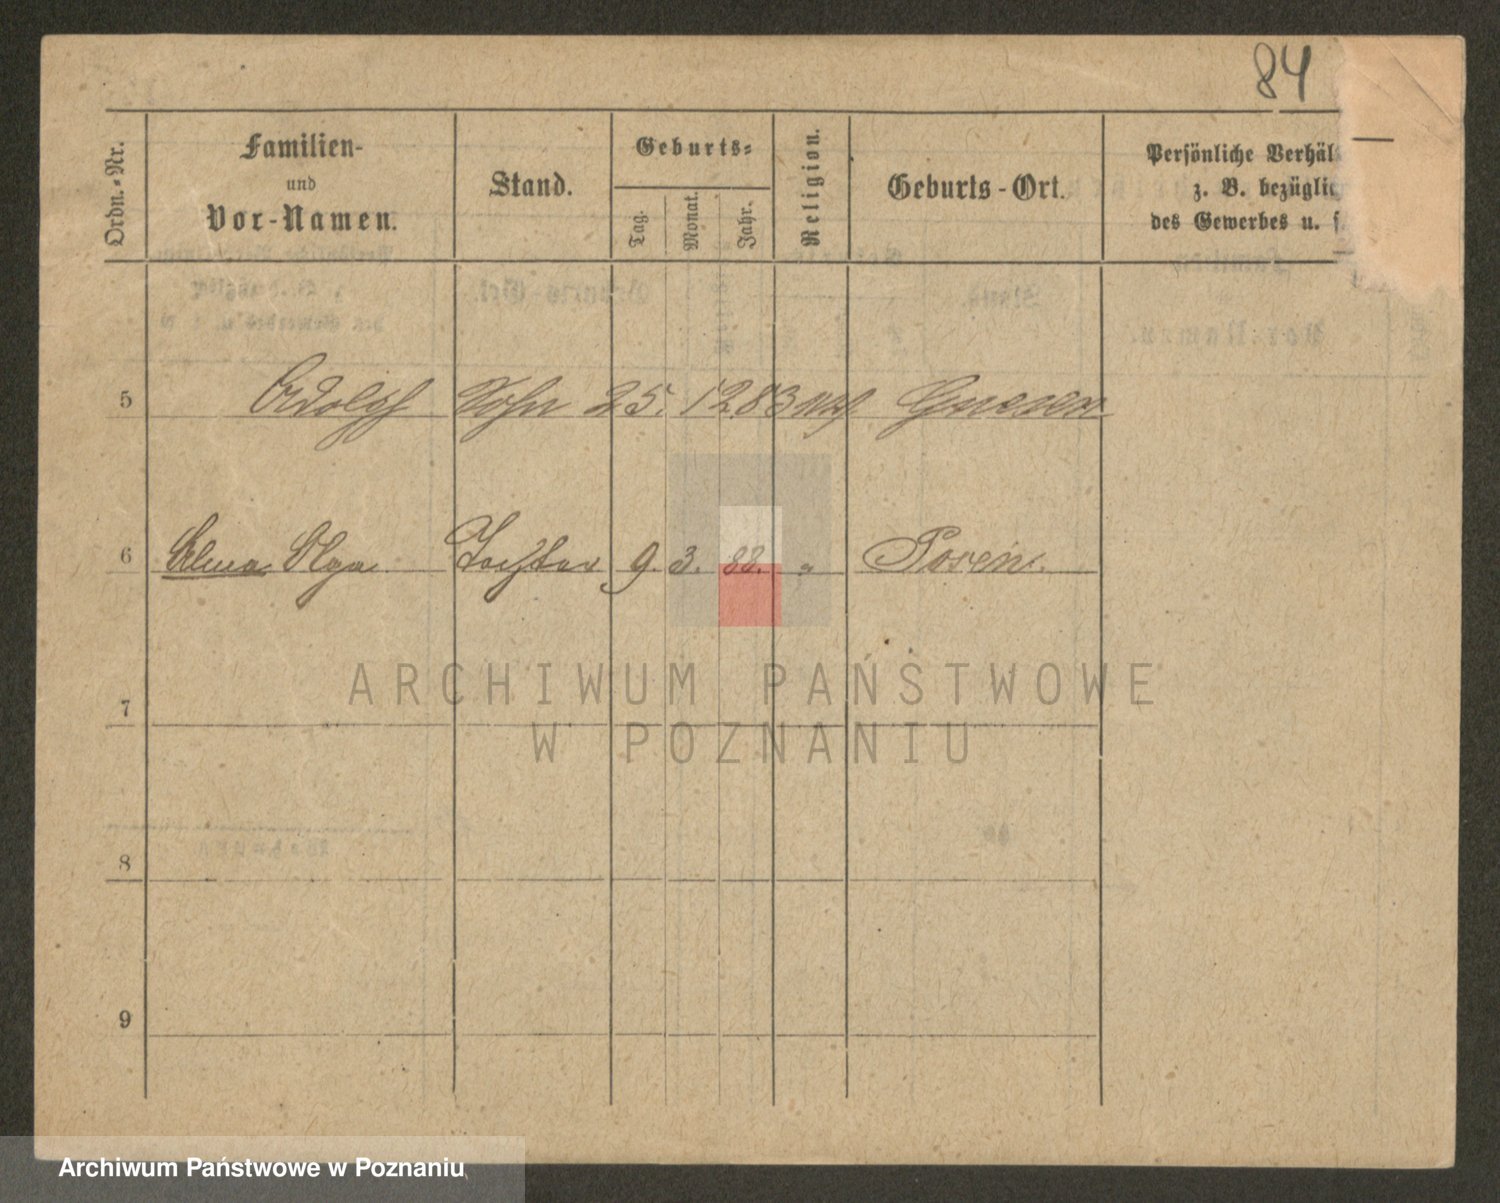 84
Ordn.-Nr.
Familien-
und
Vor-Namen.
Stand.
Geburts-
Tag.
Monat.
Jahr.
Religion.
Geburts-Ort.
Persönliche Verhäl
z. B. bezüglic
des Gewerbes u. s
5 Adolph Sohn 25. 12 83 Gnesen
6 Selma Olga Tochter 9. 3. 88. " Posen.
7
8
9
ARCHIWUM PAŃSTWOWE
W POZNANIU
Archiwum Państwowe w Poznaniu